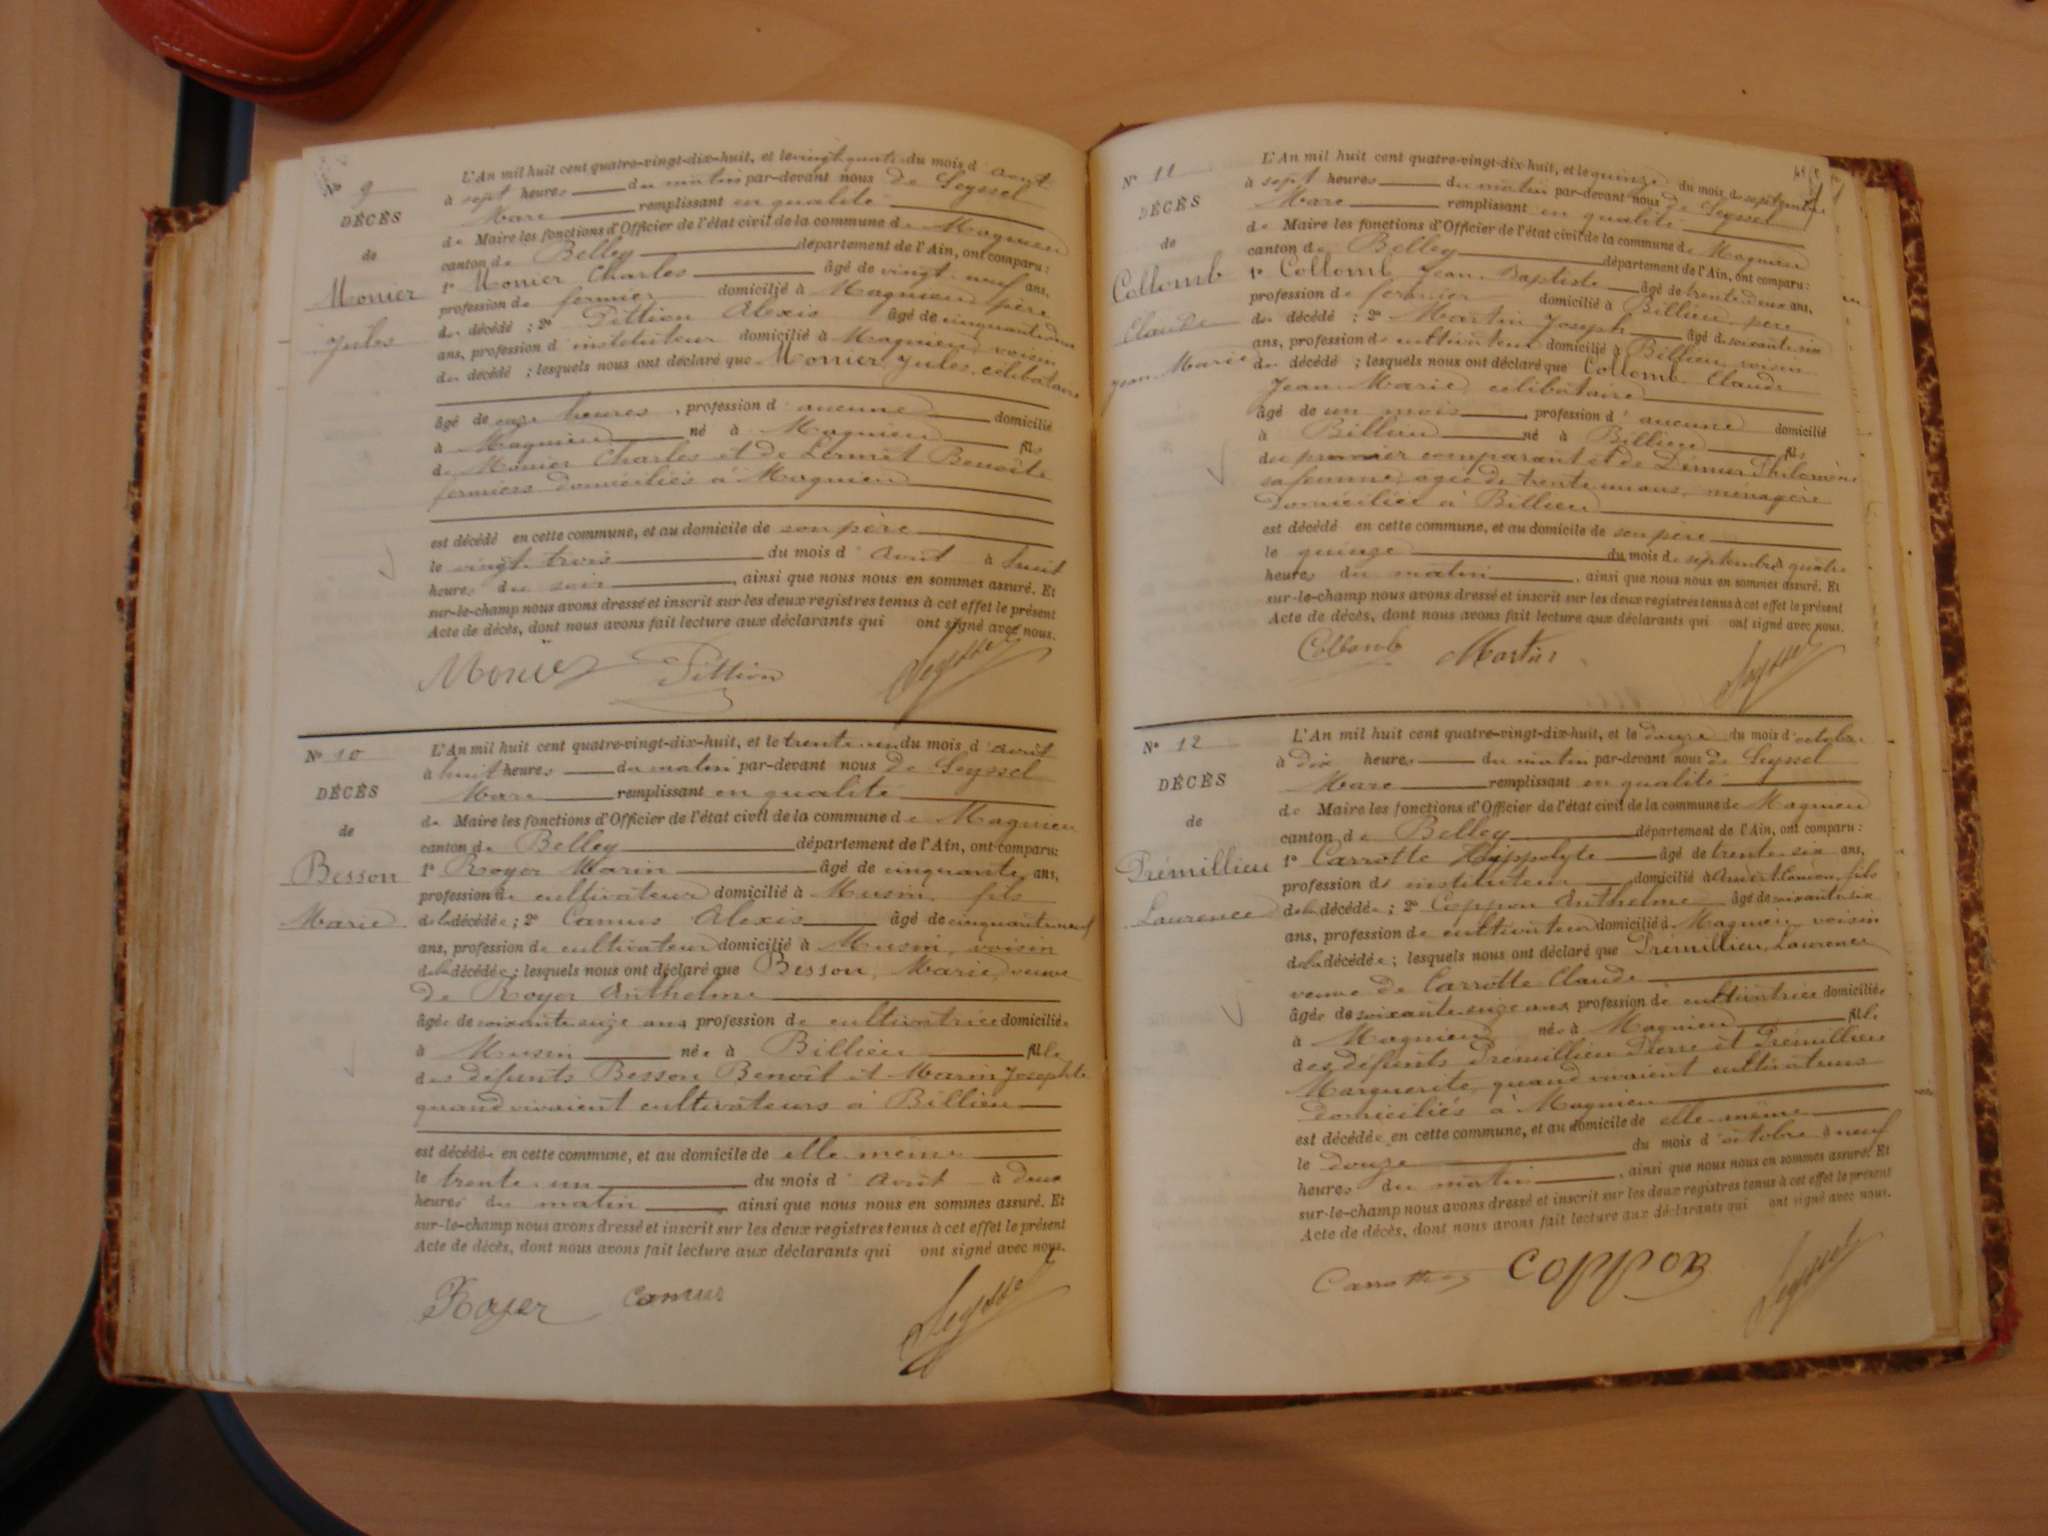 N° 9
DÉCÈS
de
Monier
Jules
L'An mil huit cent quatre-vingt-dix-huit, et le vingt quatre du mois d'août
à sept heures du matin par-devant nous de Seyssel
Marc remplissant en qualité
de Maire les fonctions d'Officier de l'état civil de la commune de Magnieu
canton de Belley département de l'Ain, ont comparu :
1° Monier Charles âgé de vingt-neuf ans,
profession de fermier domicilié à Magnieu, père
du décédé ; 2° Pittion Alexis âgé de cinquante deux
ans, profession d'instituteur domicilié à Magnieu, voisin
du décédé ; lesquels nous ont déclaré que Monier Jules, célibataire
âgé de onze heures, profession d'aucune domicilié
à Magnieu né à Magnieu fils
de Monier Charles et de Benoîte
fermiers domiciliés à Magnieu
est décédé en cette commune, et au domicile de son père
le vingt-trois du mois d'août à huit
heures du soir, ainsi que nous nous en sommes assuré. Et
sur-le-champ nous avons dressé et inscrit sur les deux registres tenus à cet effet le présent
Acte de décès, dont nous avons fait lecture aux déclarants qui ont signé avec nous.
Monier Pittion Seyssel
N° 10
DÉCÈS
de
Besson
Marie
L'An mil huit cent quatre-vingt-dix-huit, et le trente-un du mois d'août
à huit heures du matin par-devant nous de Seyssel
Marc remplissant en qualité
de Maire les fonctions d'Officier de l'état civil de la commune de Magnieu
canton de Belley département de l'Ain, ont comparu :
1° Royer Marin âgé de cinquante ans,
profession de cultivateur domicilié à Musin, fils
de la décédée ; 2° Camus Alexis âgé de cinquante neuf
ans, profession de cultivateur domicilié à Musin, voisin
de la décédée ; lesquels nous ont déclaré que Besson, Marie, veuve
de Royer Anthelme
âgée de soixante seize ans, profession de cultivatrice domiciliée
à Musin née à Billieu fille
des défunts Besson Benoît et Marin Josephte
quand vivaient cultivateurs à Billieu
est décédée en cette commune, et au domicile de elle-même
le trente-un du mois d'août à deux
heures du matin, ainsi que nous nous en sommes assuré. Et
sur-le-champ nous avons dressé et inscrit sur les deux registres tenus à cet effet le présent
Acte de décès, dont nous avons fait lecture aux déclarants qui ont signé avec nous.
Royer Camus Seyssel
N° 11
DÉCÈS
de
Collomb
Claude
Jean-Marie
L'An mil huit cent quatre-vingt-dix-huit, et le quinze du mois de septembre
à sept heures du matin par-devant nous de Seyssel
Marc remplissant en qualité
de Maire les fonctions d'Officier de l'état civil de la commune de Magnieu
canton de Belley département de l'Ain, ont comparu :
1° Collomb Jean-Baptiste âgé de trente deux ans,
profession de fermier domicilié à Billieu, père
du décédé ; 2° Martin Joseph âgé de soixante six
ans, profession de cultivateur domicilié à Billieu, voisin
du décédé ; lesquels nous ont déclaré que Collomb Claude
Jean-Marie célibataire
âgé de un mois, profession d'aucune domicilié
à Billieu né à Billieu fils
du premier comparant et de Philomène
sa femme, âgée de trente-un ans, ménagère
domiciliée à Billieu
est décédé en cette commune, et au domicile de son père
le quinze du mois de septembre à quatre
heures du matin, ainsi que nous nous en sommes assuré. Et
sur-le-champ nous avons dressé et inscrit sur les deux registres tenus à cet effet le présent
Acte de décès, dont nous avons fait lecture aux déclarants qui ont signé avec nous.
Collomb Martin Seyssel
N° 12
DÉCÈS
de
Prémillieu
Laurence
L'An mil huit cent quatre-vingt-dix-huit, et le douze du mois d'octobre
à dix heures du matin par-devant nous de Seyssel
Marc remplissant en qualité
de Maire les fonctions d'Officier de l'état civil de la commune de Magnieu
canton de Belley département de l'Ain, ont comparu :
1° Carrotte Hippolyte âgé de trente-six ans,
profession d'instituteur domicilié à fils
de la décédée ; 2° Coppon Anthelme âgé de soixante six
ans, profession de cultivateur domicilié à Magnieu, voisin
de la décédée ; lesquels nous ont déclaré que Prémillieu, Laurence
veuve de Carrotte Claude
âgée de soixante seize ans, profession de cultivatrice domiciliée
à Magnieu née à Magnieu fille
des défunts Prémillieu Pierre et Prémillieu
Marguerite, quand vivaient cultivateurs
domiciliés à Magnieu
est décédée en cette commune, et au domicile de elle-même
le douze du mois d'octobre à neuf
heures du matin, ainsi que nous nous en sommes assuré. Et
sur-le-champ nous avons dressé et inscrit sur les deux registres tenus à cet effet le présent
Acte de décès, dont nous avons fait lecture aux déclarants qui ont signé avec nous.
Carrotte Coppon Seyssel